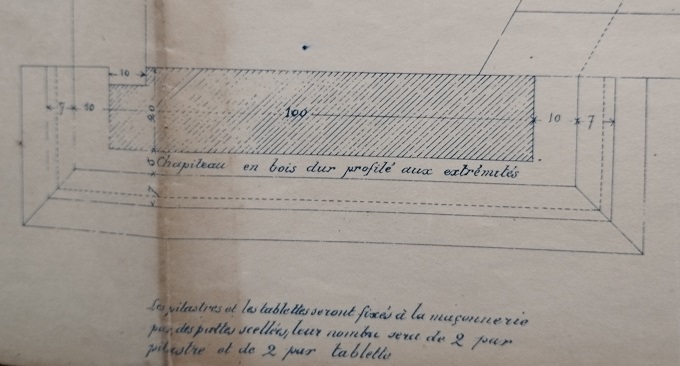 10
7 10 20 100 10 7
Chapiteau en bois dur profilé aux extrémités
7
Les pilastres et les tablettes seront fixés à la maçonnerie
par des pattes scellées, leur nombre sera de 2 par
pilastre et de 2 par tablette